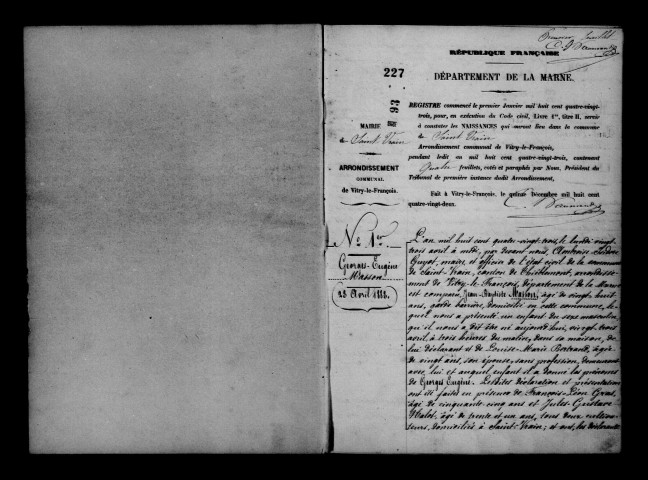 Premier feuillet
RÉPUBLIQUE FRANÇAISE
227
DÉPARTEMENT DE LA MARNE.
93
MAIRIE
de Saint Vrain
ARRONDISSEMENT
COMMUNAL
de Vitry-le-François.
REGISTRE commencé le premier Janvier mil huit cent quatre-vingt-
trois, pour, en exécution du Code civil, Livre 1er, titre II, servir
à constater les NAISSANCES qui auront lieu dans la commune
de Saint Vrain
Arrondissement communal de Vitry-le-François,
pendant ledit an mil huit cent quatre-vingt-trois, contenant
Quatre feuillets, cotés et paraphés par Nous, Président du
Tribunal de première instance dudit Arrondissement,
Fait à Vitry-le-François, le quinze Décembre mil huit cent
quatre-vingt-deux.
No 1er
Georges-Eugène
Masson
23 Avril 1883.
L'an mil huit cent quatre-vingt-trois, le lundi vingt-
trois avril à midi, par devant nous, Ambroise Isidore
Guyot, maire, et officier de l'état civil de la commune
de Saint-Vrain, canton de Thiéblemont, arrondisse-
ment de Vitry-le-François, département de la Marne
est comparu, Jean-Baptiste Masson, âgé de vingt-huit
ans, garde barrière, domicilié en cette commune, le-
quel nous a présenté un enfant du sexe masculin,
qu'il nous a dit être né aujourd'hui, vingt-trois
avril, à trois heures du matin, dans sa maison, de
lui déclarant et de Louise-Marie Bertrand, âgée
de vingt ans, son épouse, sans profession, demeurant
avec lui et auquel enfant il a donné les prénoms
de Georges Eugène. Lesdites déclaration et présentation
ont été faites en présence de François-Léon
âgé de cinquante-cinq ans et Jules-Gustave
âgé de trente et un ans, tous deux cultiva-
teurs, domiciliés à Saint-Vrain; et ont, les déclarants